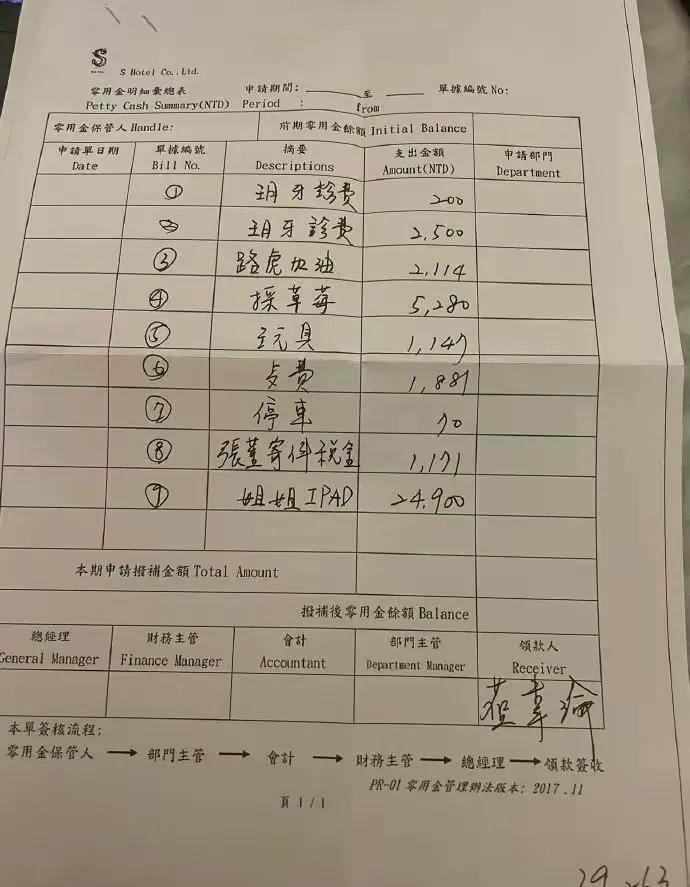 S
S Hotel Co.,Ltd.
零用金明細彙總表 申請期間: ______至 ______ 單據編號 No:
Petty Cash Summary(NTD) Period : from
零用金保管人 Handle: 前期零用金餘額 Initial Balance
申請單日期 單據編號 摘要 支出金額 申請部門
Date Bill No. Descriptions Amount(NTD) Department
① 玥牙診費 200
② 玥牙診費 2,500
③ 路虎加油 2,114
④ 採草莓 5,280
⑤ 玩具 1,147
⑥ 餐費 1,881
⑦ 停車 70
⑧ 張董寄件稅金 1,171
⑨ 姐姐IPAD 24,900
本期申請撥補金額 Total Amount
撥補後零用金餘額 Balance
總經理 財務主管 會計 部門主管 領款人
General Manager Finance Manager Accountant Department Manager Receiver
本單簽核流程:
零用金保管人 → 部門主管 → 會計 → 財務主管 → 總經理 → 領款簽收
PR-01 零用金管理辦法版本: 2017.11
頁 1/1